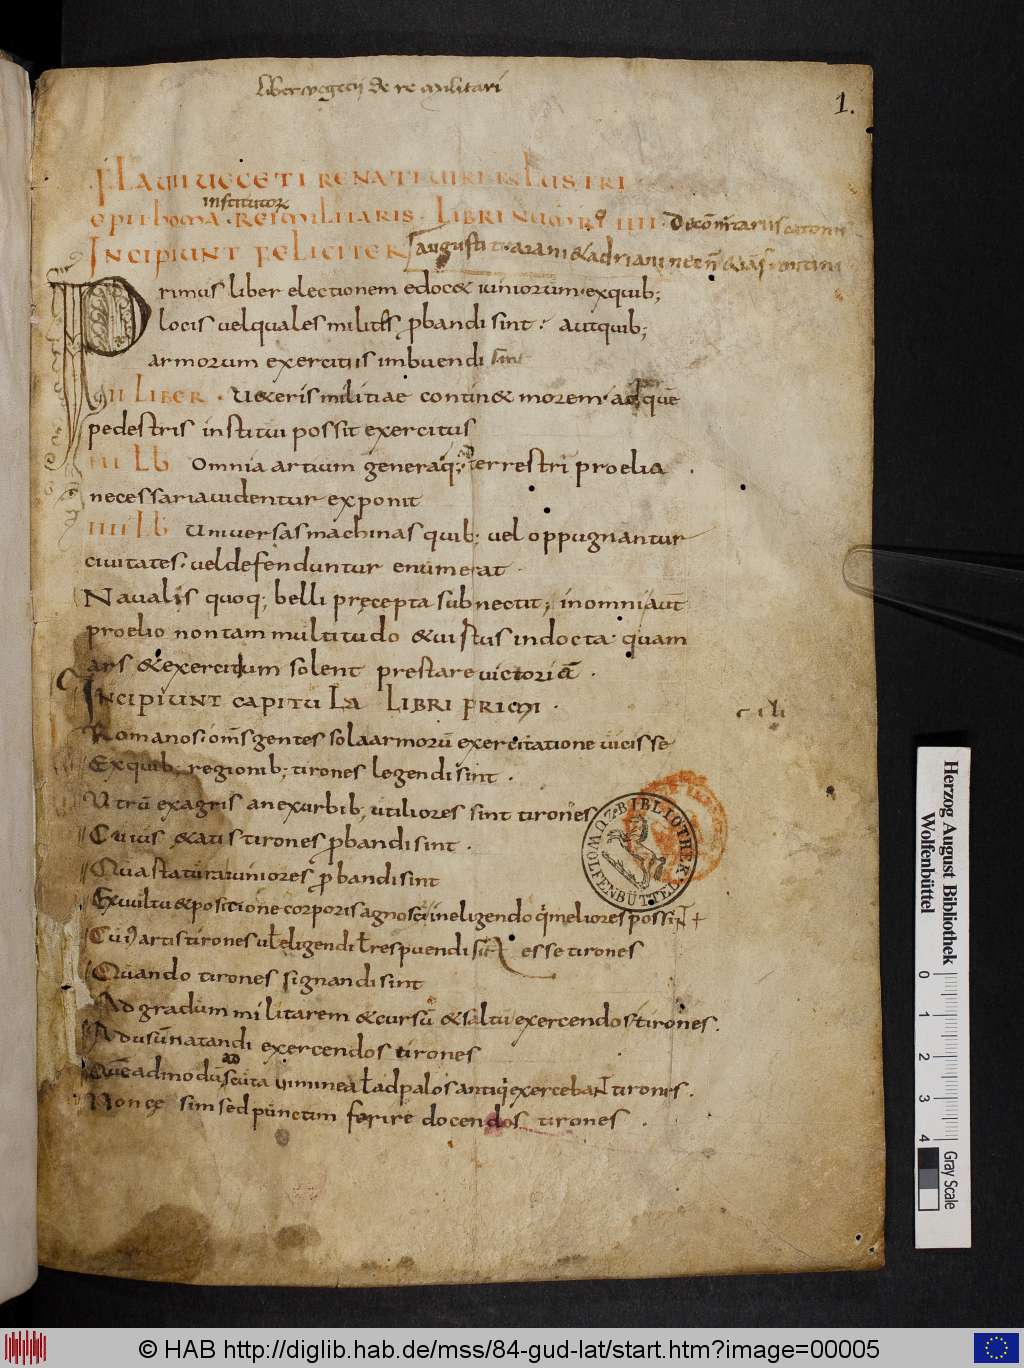 Liber vegecij de re militari
1.
FLAVII VEGETI RENATI VIRI INLUSTRI
institutoꝝ
epithoma · REI MILITARIS · LIBRI NUMERO IIII · De cōmentariis catonis
INCIPIUNT FELICITER augusti traiani & adriani necn̄ &
Primus liber electionem edoc& iuniorum · exquib;
locis uelquales milites ꝓbandi sint : autquib;
armorum exercitiis imbuendi sint
II LIBER · Ueteris militiae contin& morem · ad quē
pedestris institui possit exercitus
III Lb Omnia artium genera q; terrestri proelia .
necessaria uidentur exponit
IIII Lb Uniuersas machinas quib; uel oppugnantur
ciuitates · uel defenduntur enumerat ·
Naualis quoq; belli pręcepta subnectit ; in omni aut̄
proelio non tam multitudo & uirtus indocta · quam
ars & exercitium solent prestare victoriā .
INCIPIUNT CAPITULA LIBRI PRIMI ·
Romanos : om̄s gentes sola armorū exercitatione uicisse
Ex quib; regionib; tirones legendi sint .
Utrū ex agris an ex urbib; utiliores sint tirones
Cuius &atis tirones ꝓbandi sint .
Qua statura iuniores ꝓbandi sint
Ex uultu & positione corporis agnosci in eligendo q̄ meliores possiNT +
Cui artis tirones uł eligendi ł respuendi sint esse tirones
Quando tirones signandi sint
Ad gradum militarem & cursū & saltū exercendos tirones .
Ad usū natandi exercendos tirones
ad
Quēadmodū scuta uiminea ł ad palos antiqi exercebaNT tirones .
Non cęsim sed punctim ferire docendos tirones .
BIBLIOTHEK
ZU WOLFENBÜTTEL
Herzog August Bibliothek
Wolfenbüttel
0 1 2 3 4
Gray Scale
© HAB http://diglib.hab.de/mss/84-gud-lat/start.htm?image=00005